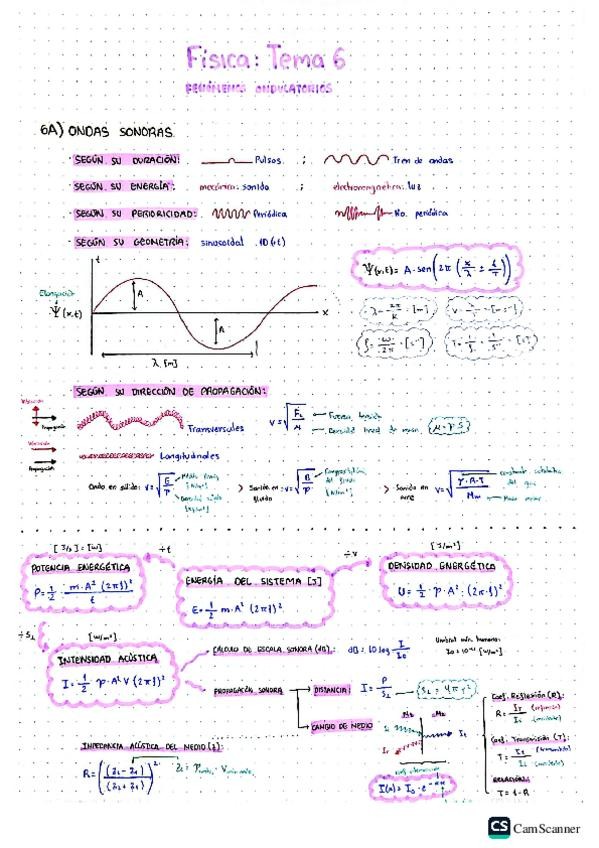 Física: Tema 6
FENÓMENOS ONDULATORIOS
6A) ONDAS SONORAS
· SEGÚN SU DURACIÓN: Pulsos ; Tren de ondas
· SEGÚN SU ENERGÍA: mecánica: sonido ; electromagnética: luz
· SEGÚN SU PERIODICIDAD: Periódica No periódica
· SEGÚN SU GEOMETRÍA: sinusoidal
Elongación
Ψ(x,t)
t
A
A
x
λ [m]
Ψ(x,t) = A · sen(2π(x/λ ± t/T))
λ = 2π/K [m]
f = ω/2π [s⁻¹]
· SEGÚN SU DIRECCIÓN DE PROPAGACIÓN:
Vibración
Propagación
Transversales
V = √(FL/μ)
Densidad lineal de masa
μ = ρ · S
Vibración
Propagación
Longitudinales
Onda en sólido: V = √(E/ρ)
> Sonido en fluido: V = √(B/ρ)
> Sonido en aire V = √(γ·R·T/Mm)
Masa molar
[J/s] = [W]
POTENCIA ENERGÉTICA
P = 1/2 · m·A²(2πf)²/t
÷t
ENERGÍA DEL SISTEMA [J]
E = 1/2 m·A²(2πf)²
÷V
[J/m³]
DENSIDAD ENERGÉTICA
U = 1/2 · ρ · A² · (2πf)²
÷S⊥
[W/m²]
INTENSIDAD ACÚSTICA
I = 1/2 ρ·A²V(2πf)²
CÁLCULO DE ESCALA SONORA (dB): dB = 10 log I/I₀
Umbral mín. humano:
PROPAGACIÓN SONORA
DISTANCIA: I = P/S⊥
S⊥ = 4πr²
CAMBIO DE MEDIO
M₁ M₂
Ii
It
Ir
I(x) = I₀ · e
Coef. Reflexión (R):
R = Ir/Ii (reflejada) (incidente)
Coef. Transmisión (T):
T = It/Ii (transmitida) (incidente)
RELACIÓN:
T = 1 - R
IMPEDANCIA ACÚSTICA DEL MEDIO (Z):
R = ((Z₂ - Z₁)/(Z₂ + Z₁))²
CS CamScanner